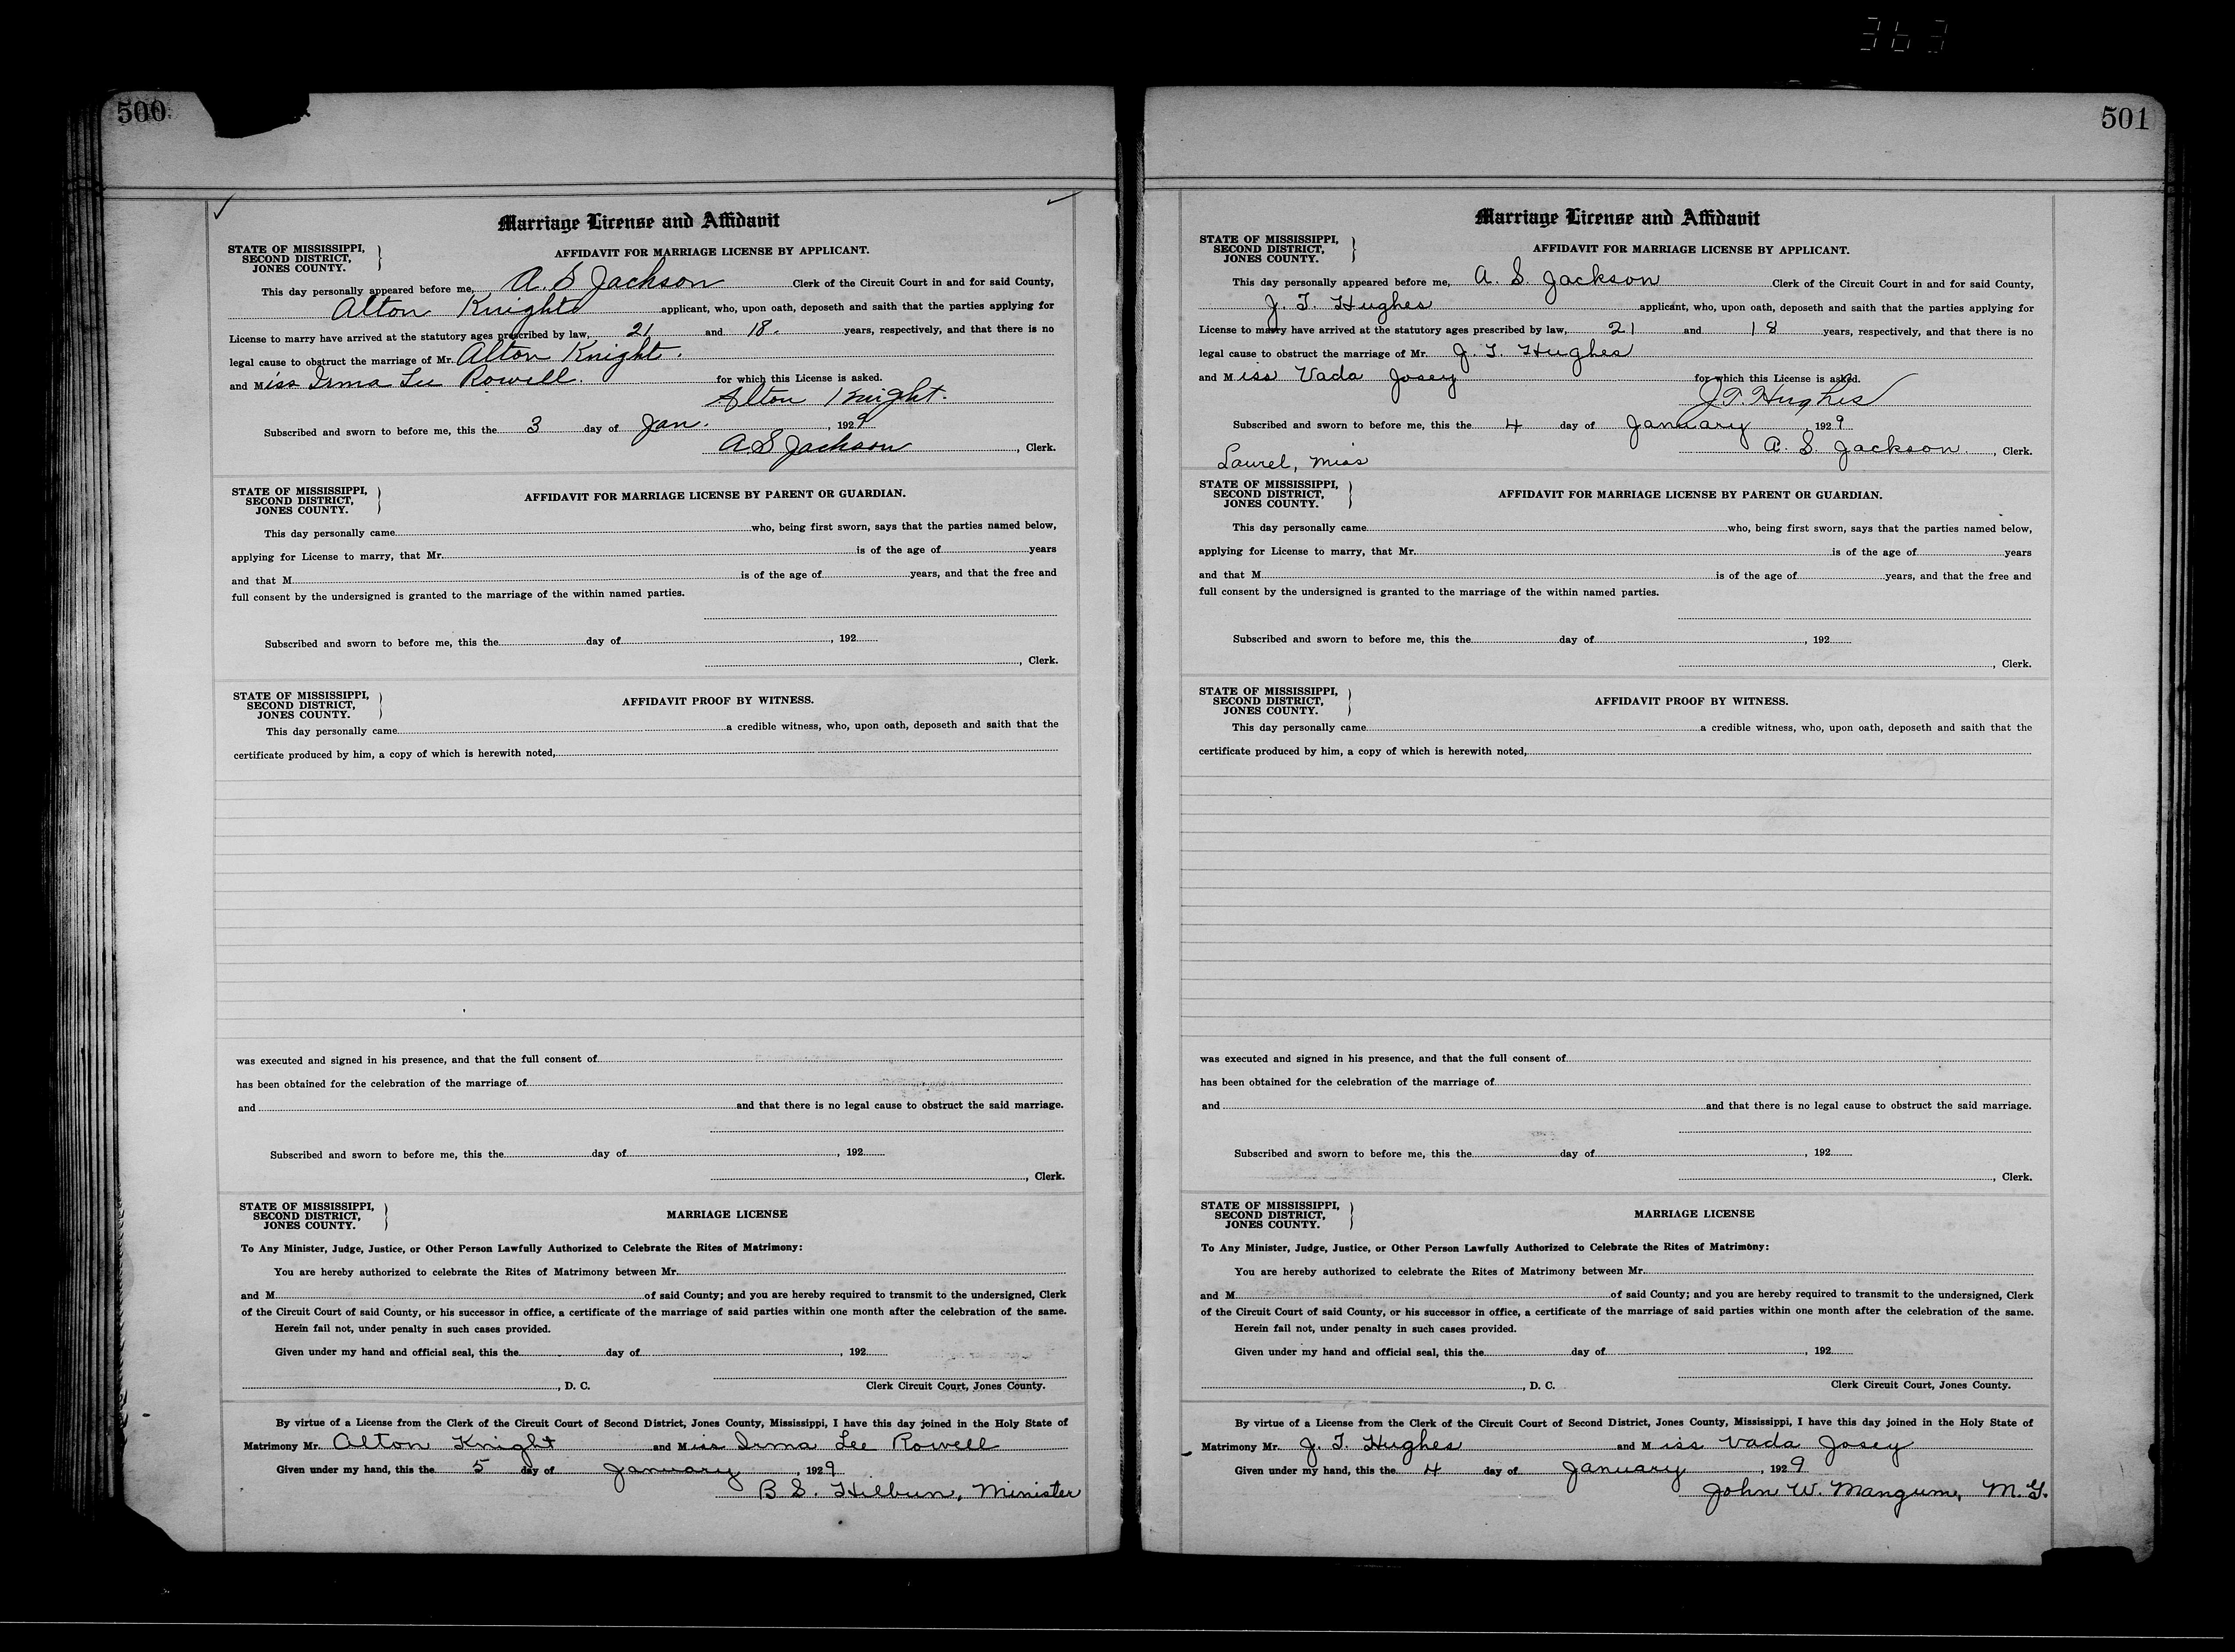 363
500
Marriage License and Affidavit
STATE OF MISSISSIPPI,
SECOND DISTRICT,
JONES COUNTY.
AFFIDAVIT FOR MARRIAGE LICENSE BY APPLICANT.
This day personally appeared before me, A. S Jackson Clerk of the Circuit Court in and for said County,
Alton Knight applicant, who, upon oath, deposeth and saith that the parties applying for
License to marry have arrived at the statutory ages prescribed by law, 21 and 18. years, respectively, and that there is no
legal cause to obstruct the marriage of Mr. Alton Knight.
and Miss Irma Lee Rowell. for which this License is asked.
Alton Knight.
Subscribed and sworn to before me, this the 3 day of Jan. , 1929
A. S Jackson , Clerk.
STATE OF MISSISSIPPI,
SECOND DISTRICT,
JONES COUNTY.
AFFIDAVIT FOR MARRIAGE LICENSE BY PARENT OR GUARDIAN.
This day personally came who, being first sworn, says that the parties named below,
applying for License to marry, that Mr. is of the age of years
and that M is of the age of years, and that the free and
full consent by the undersigned is granted to the marriage of the within named parties.
Subscribed and sworn to before me, this the day of , 192
, Clerk.
STATE OF MISSISSIPPI,
SECOND DISTRICT,
JONES COUNTY.
AFFIDAVIT PROOF BY WITNESS.
This day personally came a credible witness, who, upon oath, deposeth and saith that the
certificate produced by him, a copy of which is herewith noted,
was executed and signed in his presence, and that the full consent of
has been obtained for the celebration of the marriage of
and and that there is no legal cause to obstruct the said marriage.
Subscribed and sworn to before me, this the day of , 192
, Clerk.
STATE OF MISSISSIPPI,
SECOND DISTRICT,
JONES COUNTY.
MARRIAGE LICENSE
To Any Minister, Judge, Justice, or Other Person Lawfully Authorized to Celebrate the Rites of Matrimony:
You are hereby authorized to celebrate the Rites of Matrimony between Mr.
and M of said County; and you are hereby required to transmit to the undersigned, Clerk
of the Circuit Court of said County, or his successor in office, a certificate of the marriage of said parties within one month after the celebration of the same.
Herein fail not, under penalty in such cases provided.
Given under my hand and official seal, this the day of , 192
, D. C. Clerk Circuit Court, Jones County.
By virtue of a License from the Clerk of the Circuit Court of Second District, Jones County, Mississippi, I have this day joined in the Holy State of
Matrimony Mr. Alton Knight and Miss Irma Lee Rowell
Given under my hand, this the 5 day of January , 1929
B. S. Hilbun, Minister
501
Marriage License and Affidavit
STATE OF MISSISSIPPI,
SECOND DISTRICT,
JONES COUNTY.
AFFIDAVIT FOR MARRIAGE LICENSE BY APPLICANT.
This day personally appeared before me, A. S. Jackson Clerk of the Circuit Court in and for said County,
J. T. Hughes applicant, who, upon oath, deposeth and saith that the parties applying for
License to marry have arrived at the statutory ages prescribed by law, 21 and 18 years, respectively, and that there is no
legal cause to obstruct the marriage of Mr. J. T. Hughes
and Miss Vada Josey for which this License is asked.
J. T. Hughes
Subscribed and sworn to before me, this the 4 day of January 1929
A. S. Jackson. , Clerk.
Laurel, Miss
STATE OF MISSISSIPPI,
SECOND DISTRICT,
JONES COUNTY.
AFFIDAVIT FOR MARRIAGE LICENSE BY PARENT OR GUARDIAN.
This day personally came who, being first sworn, says that the parties named below,
applying for License to marry, that Mr. is of the age of years
and that M is of the age of years, and that the free and
full consent by the undersigned is granted to the marriage of the within named parties.
Subscribed and sworn to before me, this the day of , 192
, Clerk.
STATE OF MISSISSIPPI,
SECOND DISTRICT,
JONES COUNTY.
AFFIDAVIT PROOF BY WITNESS.
This day personally came a credible witness, who, upon oath, deposeth and saith that the
certificate produced by him, a copy of which is herewith noted,
was executed and signed in his presence, and that the full consent of
has been obtained for the celebration of the marriage of
and and that there is no legal cause to obstruct the said marriage.
Subscribed and sworn to before me, this the day of , 192
, Clerk.
STATE OF MISSISSIPPI,
SECOND DISTRICT,
JONES COUNTY.
MARRIAGE LICENSE
To Any Minister, Judge, Justice, or Other Person Lawfully Authorized to Celebrate the Rites of Matrimony:
You are hereby authorized to celebrate the Rites of Matrimony between Mr.
and M of said County; and you are hereby required to transmit to the undersigned, Clerk
of the Circuit Court of said County, or his successor in office, a certificate of the marriage of said parties within one month after the celebration of the same.
Herein fail not, under penalty in such cases provided.
Given under my hand and official seal, this the day of , 192
, D. C. Clerk Circuit Court, Jones County.
By virtue of a License from the Clerk of the Circuit Court of Second District, Jones County, Mississippi, I have this day joined in the Holy State of
Matrimony Mr. J. T. Hughes and Miss Vada Josey
Given under my hand, this the 4 day of January , 1929
John W. Mangum, M. G.